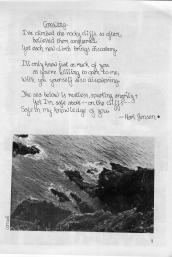 Growing
I've climbed the rocky cliffs so often,
believed them conquered.
Yet each new climb brings discovery.
I'll only know just as much of you
as you're willing to open to me,
With you yourself also discovering.
The sea below is restless, spurting angrily,
Yet I'm safe here - on the cliffs
Safe in my knowledge of you.
— Hart Jensen